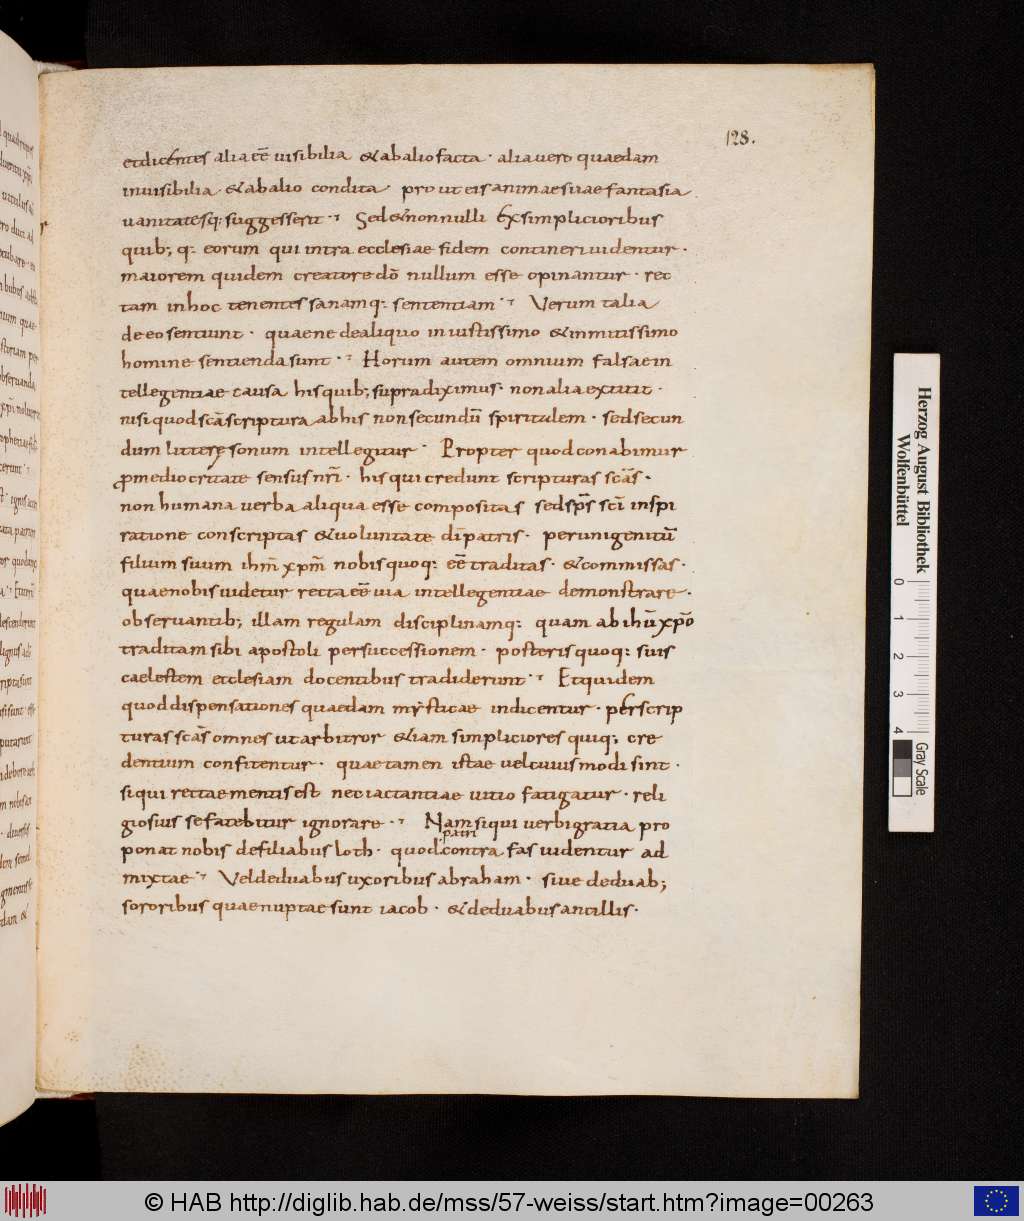 128.
et dicentes alia eē uisibilia & ab alio facta · alia uero quaedam
inuisibilia & ab alio condita · pro ut eis animae suae fantasia
uanitatesq; suggesserit · Sed & nonnulli Ex simplicioribus
quib; q; eorum qui intra ecclesiae fidem contineri uidentur ·
maiorem quidem creatore dō nullum esse opinantur · rec
tam in hoc tenentes sanamq; sententiam · Verum talia
de eo sentiunt · quae ne de aliquo iniustissimo & inmitissimo
homine sentienda sunt · Horum autem omnium falsae in
tellegentiae causa his quib; supra diximus · non alia extitit ·
nisi quod scā scriptura ab his non secundū spiritalem · sed secun
dum litterę sonum intellegitur · Propter quod conabimur
ꝓ mediocritate sensus nr̄i · his qui credunt scripturas scās ·
non humana uerba aliqua esse compositas sed sp̄s scī inspi
ratione conscriptas & uoluntate dī patris · per unigenitū
filium suum ihm̄ xpm̄ nobis quoq; eē traditas · & commissas ·
quae nobis uidetur recta eē uia intellegentiae demonstrare ·
obseruantib; illam regulam disciplinamq; quam ab ihū xp̄o
traditam sibi apostoli per successionem · posteris quoq; suis
caelestem ecclesiam docentibus tradiderunt · Et quidem
quod dispensationes quaedam mysticae indicentur · per scrip
turas scās omnes ut arbitror &iam simpliciores quiq; cre
dentium confitentur · quae tamen istae uel cuius modi sint ·
si qui rectae mentis est nec iactantiae uitio fatigatur · reli
giosius se fatebitur ignorare · Nam si qui uerbi gratia pro
patri
ponat nobis de filiabus loth · quod contra fas uidentur ad
mixtae · Vel de duabus uxoribus abraham · siue de duab;
sororibus quae nuptae sunt iacob · & de duabus ancillis ·
Herzog August Bibliothek
Wolfenbüttel
0 1 2 3 4
Gray Scale
© HAB http://diglib.hab.de/mss/57-weiss/start.htm?image=00263